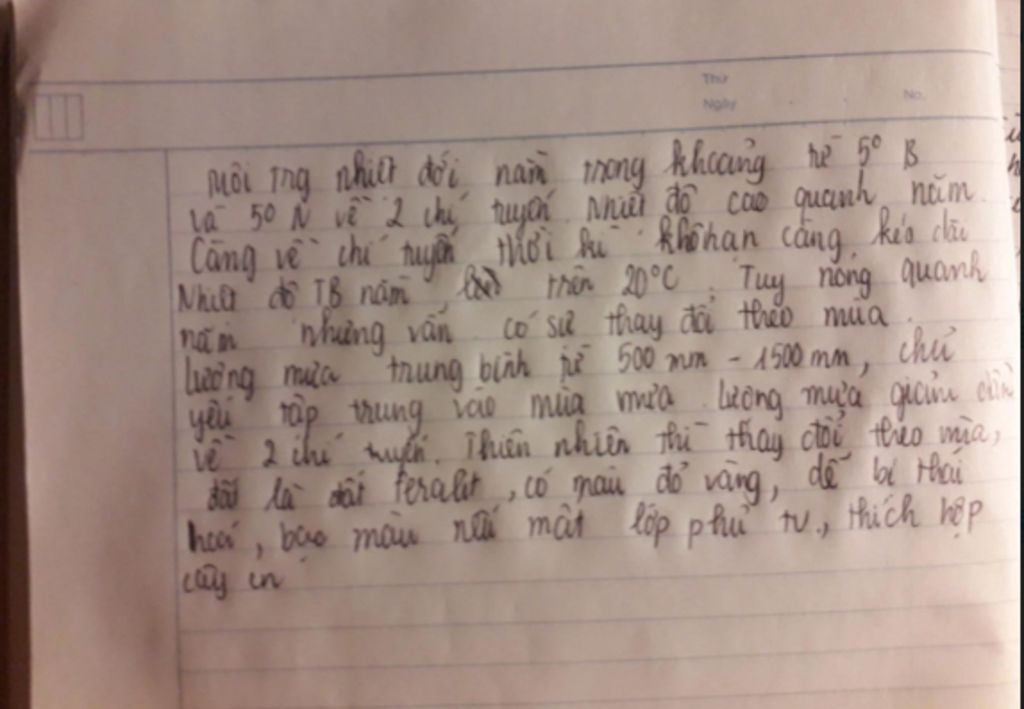 Thứ
Ngày
No.
Môi trg nhiệt đới nằm trong khoảng từ 5° B
và 5° N về 2 chí tuyến. Nhiệt độ cao quanh năm
Càng về chí tuyến, thời kì khô hạn càng kéo dài
Nhiệt độ TB năm trên 20°C. Tuy nóng quanh
năm nhưng vẫn có sự thay đổi theo mùa.
Lượng mưa trung bình từ 500 mm - 1500 mm, chủ
yếu tập trung vào mùa mưa. Lượng mưa giảm dần
về 2 chí tuyến. Thiên nhiên thì thay đổi theo mùa,
đất là đất feralit, có màu đỏ vàng, dễ bị thoái
hoá, bạc màu nếu mất lớp phủ tv., thích hợp
cây cn